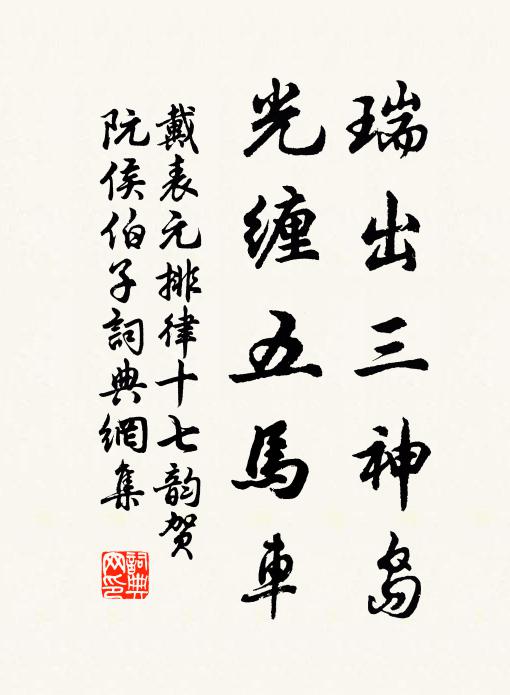 瑞出三神岛
光缠五馬車
戴表元排律十七韵贺
阮侯伯子詞典網集
詞典網印